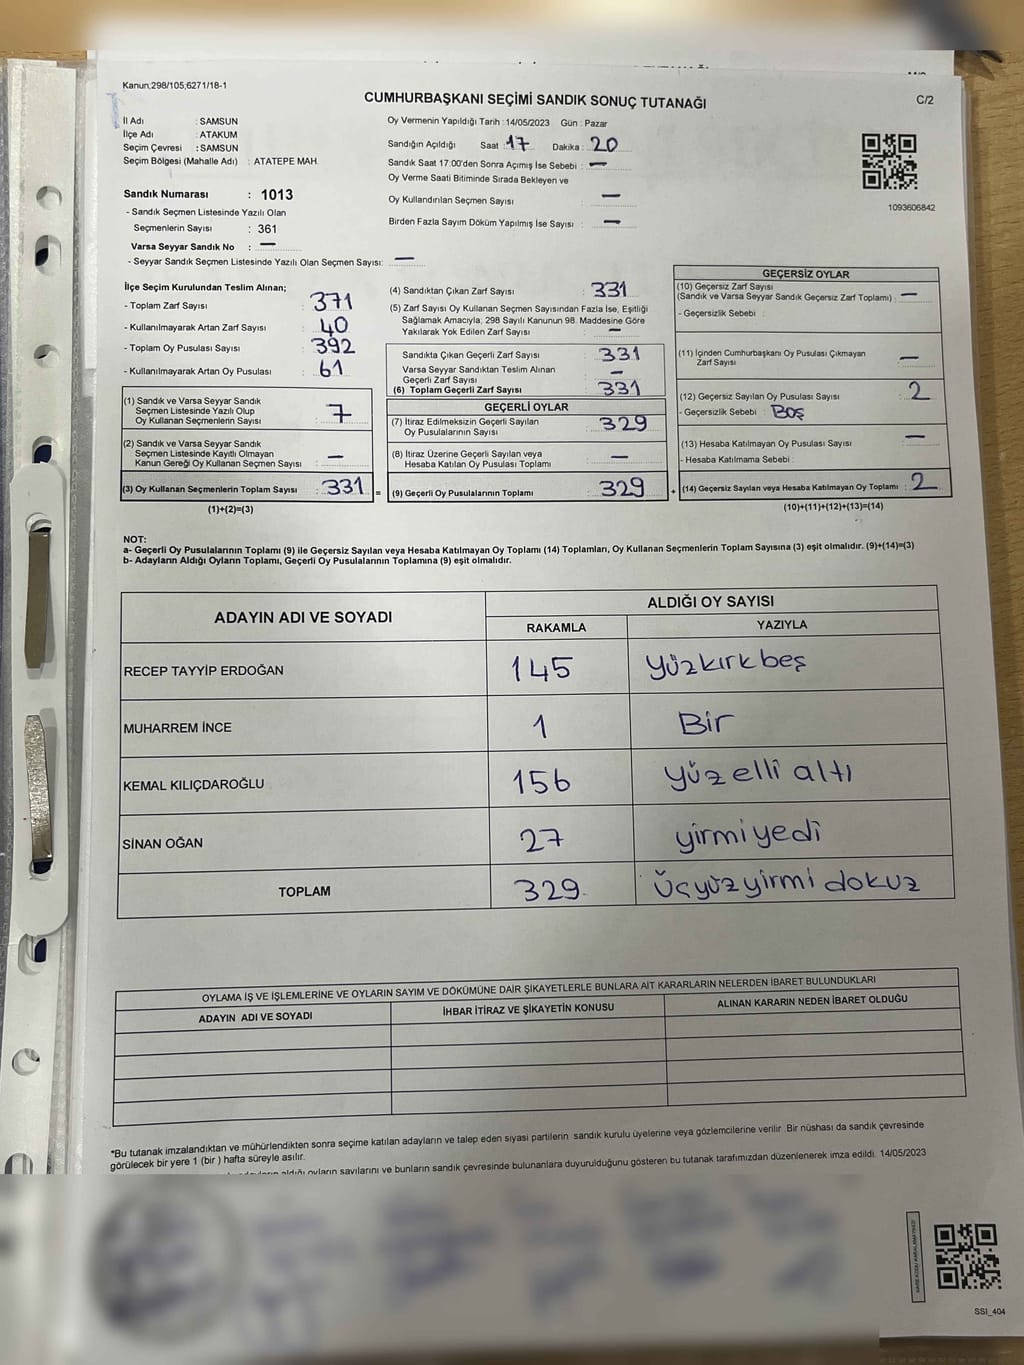 Kanun;298/105;6271/18-1
CUMHURBAŞKANI SEÇİMİ SANDIK SONUÇ TUTANAĞI
C/2
İl Adı : SAMSUN
İlçe Adı : ATAKUM
Seçim Çevresi : SAMSUN
Seçim Bölgesi (Mahalle Adı) : ATATEPE MAH.
Sandık Numarası : 1013
- Sandık Seçmen Listesinde Yazılı Olan
Seçmenlerin Sayısı : 361
Varsa Seyyar Sandık No : —
- Seyyar Sandık Seçmen Listesinde Yazılı Olan Seçmen Sayısı: —
Oy Vermenin Yapıldığı Tarih : 14/05/2023 Gün : Pazar
Sandığın Açıldığı Saat : 17 Dakika : 20
Sandık Saat 17:00'den Sonra Açımış İse Sebebi : —
Oy Verme Saati Bitiminde Sırada Bekleyen ve
Oy Kullandırılan Seçmen Sayısı : —
Birden Fazla Sayım Döküm Yapılmış İse Sayısı : —
1093606842
İlçe Seçim Kurulundan Teslim Alınan;
- Toplam Zarf Sayısı : 371
- Kullanılmayarak Artan Zarf Sayısı : 40
- Toplam Oy Pusulası Sayısı : 392
- Kullanılmayarak Artan Oy Pusulası : 61
(1) Sandık ve Varsa Seyyar Sandık
Seçmen Listesinde Yazılı Olup
Oy Kullanan Seçmenlerin Sayısı : 7
(2) Sandık ve Varsa Seyyar Sandık
Seçmen Listesinde Kayıtlı Olmayan
Kanun Gereği Oy Kullanan Seçmen Sayısı : —
(3) Oy Kullanan Seçmenlerin Toplam Sayısı : 331 =
(1)+(2)=(3)
(4) Sandıktan Çıkan Zarf Sayısı : 331
(5) Zarf Sayısı Oy Kullanan Seçmen Sayısından Fazla İse, Eşitliği
Sağlamak Amacıyla, 298 Sayılı Kanunun 98. Maddesine Göre
Yakılarak Yok Edilen Zarf Sayısı : —
Sandıkta Çıkan Geçerli Zarf Sayısı : 331
Varsa Seyyar Sandıktan Teslim Alınan
Geçerli Zarf Sayısı : —
(6) Toplam Geçerli Zarf Sayısı : 331
GEÇERLİ OYLAR
(7) İtiraz Edilmeksizin Geçerli Sayılan
Oy Pusulalarının Sayısı : 329
(8) İtiraz Üzerine Geçerli Sayılan veya
Hesaba Katılan Oy Pusulası Toplamı : —
(9) Geçerli Oy Pusulalarının Toplamı : 329 +
GEÇERSİZ OYLAR
(10) Geçersiz Zarf Sayısı
(Sandık ve Varsa Seyyar Sandık Geçersiz Zarf Toplamı) : —
- Geçersizlik Sebebi :
(11) İçinden Cumhurbaşkanı Oy Pusulası Çıkmayan
Zarf Sayısı : —
(12) Geçersiz Sayılan Oy Pusulası Sayısı : 2
- Geçersizlik Sebebi : Boş
(13) Hesaba Katılmayan Oy Pusulası Sayısı : —
- Hesaba Katılmama Sebebi :
(14) Geçersiz Sayılan veya Hesaba Katılmayan Oy Toplamı : 2
(10)+(11)+(12)+(13)=(14)
NOT:
a- Geçerli Oy Pusulalarının Toplamı (9) ile Geçersiz Sayılan veya Hesaba Katılmayan Oy Toplamı (14) Toplamları, Oy Kullanan Seçmenlerin Toplam Sayısına (3) eşit olmalıdır. (9)+(14)=(3)
b- Adayların Aldığı Oyların Toplamı, Geçerli Oy Pusulalarının Toplamına (9) eşit olmalıdır.
ADAYIN ADI VE SOYADI ALDIĞI OY SAYISI
RAKAMLA YAZIYLA
RECEP TAYYİP ERDOĞAN 145 yüzkırkbeş
MUHARREM İNCE 1 Bir
KEMAL KILIÇDAROĞLU 156 yüz elli altı
SİNAN OĞAN 27 yirmi yedi
TOPLAM 329 Üçyüzyirmi dokuz
OYLAMA İŞ VE İŞLEMLERİNE VE OYLARIN SAYIM VE DÖKÜMÜNE DAİR ŞİKAYETLERLE BUNLARA AİT KARARLARIN NELERDEN İBARET BULUNDUKLARI
ADAYIN ADI VE SOYADI İHBAR İTİRAZ VE ŞİKAYETİN KONUSU ALINAN KARARIN NEDEN İBARET OLDUĞU
*Bu tutanak imzalandıktan ve mühürlendikten sonra seçime katılan adayların ve talep eden siyasi partilerin sandık kurulu üyelerine veya gözlemcilerine verilir. Bir nüshası da sandık çevresinde
görülecek bir yere 1 (bir ) hafta süreyle asılır.
aldığı oyların sayılarını ve bunların sandık çevresinde bulunanlara duyurulduğunu gösteren bu tutanak tarafımızdan düzenlenerek imza edildi. 14/05/2023
SSI_404